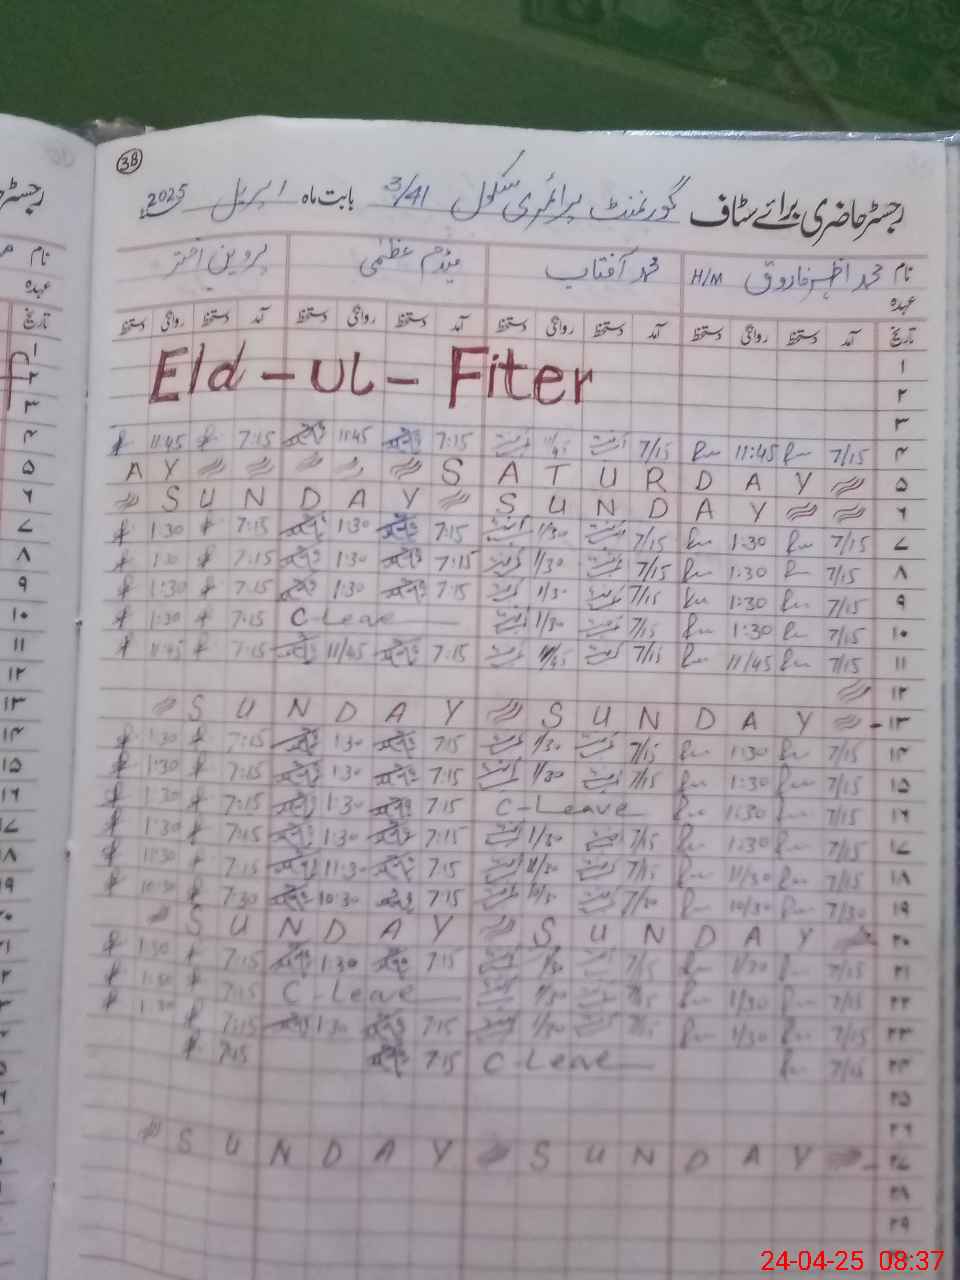 38
رجسٹر حاضری برائے سٹاف گورنمنٹ پرائمری سکول 3/41 بابت ماہ اپریل 2025
نام محمد اظہر فاروق H/M محمد آفتاب میڈم عظمٰی پروین اختر
عہدہ
تاریخ آمد دستخط روانگی دستخط آمد دستخط روانگی دستخط آمد دستخط روانگی دستخط آمد دستخط روانگی دستخط
۱
۲ EId - UL - Fiter
۳
۴ 7/15 11:45 7/15 11/45 7:15 11:45 7:15 11:45
۵ SATURDAY AY
۶ SUNDAY SUNDAY
۷ 7/15 1:30 7/15 1/30 7:15 1:30 7:15 1:30
۸ 7/15 1:30 7/15 1/30 7:15 1:30 7:15 1:30
۹ 7/15 1:30 7/15 1/30 7:15 1:30 7:15 1:30
۱۰ 7/15 1:30 7/15 1/30 C-Leave 7:15 1:30
۱۱ 7/15 11/45 7/15 11/45 7:15 11/45 7:15 11:45
۱۲
۱۳ SUNDAY SUNDAY
۱۴ 7/15 1:30 7/15 1/30 7:15 1:30 7:15 1:30
۱۵ 7/15 1:30 7/15 1/30 7:15 1:30 7:15 1:30
۱۶ 7/15 1:30 C-Leave 7:15 1:30 7:15 1:30
۱۷ 7/15 1:30 7/15 1/30 7:15 1:30 7:15 1:30
۱۸ 7/15 11/30 7/15 11/30 7:15 11:30 7:15 11:30
۱۹ 7/30 10/30 7/30 10/30 7:15 10:30 7:30 10:30
۲۰ SUNDAY SUNDAY
۲۱ 7/15 1/30 7/15 1/30 7:15 1:30 7:15 1:30
۲۲ 7/15 1/30 7/15 1/30 C-Leave 7:15 1:30
۲۳ 7/15 1/30 7/15 1/30 7:15 1:30 7:15 1:30
۲۴ 7/15 C-Leave 7:15 7:15
۲۵
۲۶
۲۷ SUNDAY SUNDAY
۲۸
۲۹
24-04-25 08:37